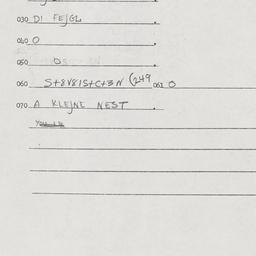 030 DI FEJGL.
040 O .
050 O .
060 S+8V8IS+C+3N (249 061 O
070 A KLEJNE NEST .